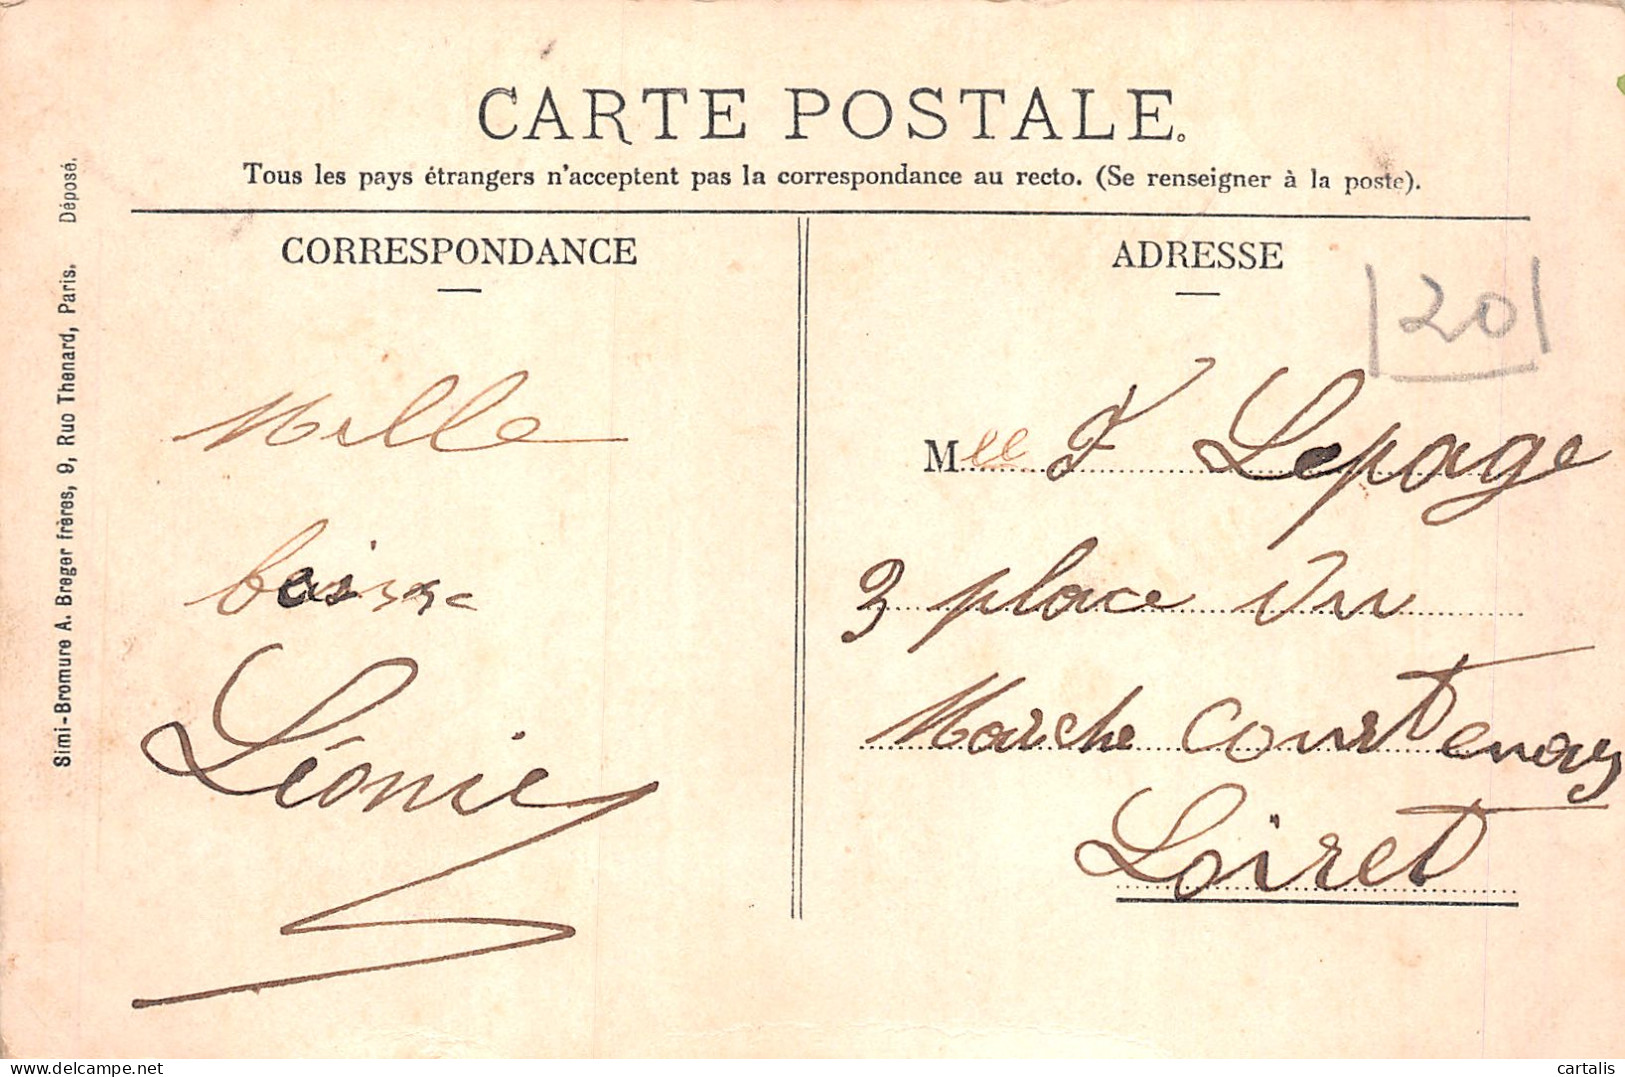 CARTE POSTALE.
Tous les pays étrangers n'acceptent pas la correspondance au recto. (Se renseigner à la poste).
CORRESPONDANCE
Mille
baisers
Léonie
ADRESSE
20
Mlle F Lepage
3 place du
Marche Courtenay
Loiret
Simi-Bromure A. Breger frères, 9, Rue Thenard, Paris. Déposé.
delcampe.net
cartalis